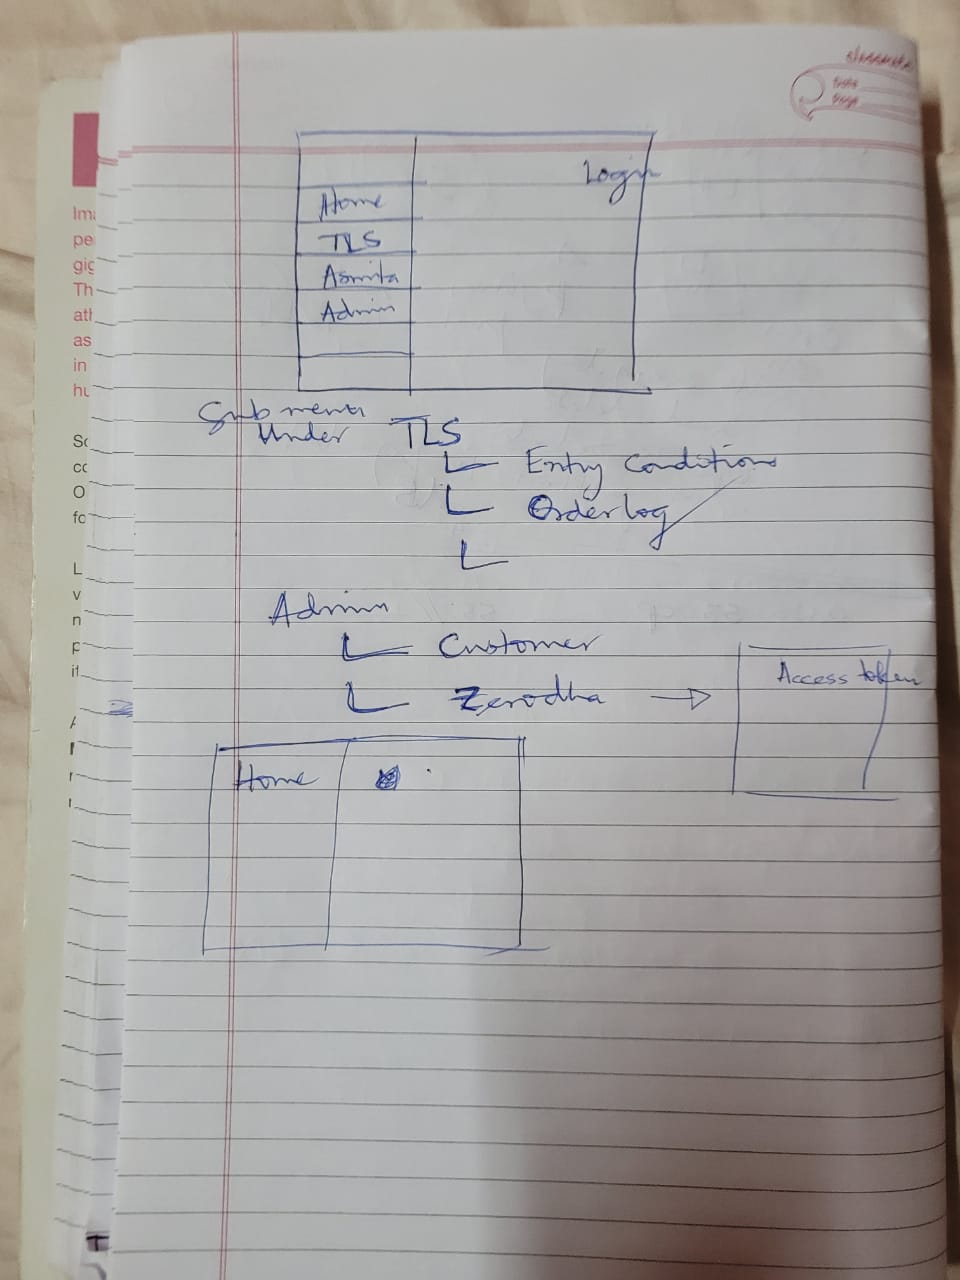 classmate
Date
Page
Login
Home
TLS
Asmita
Admin
Submenu
Under TLS
Entry Conditions
Orderlog
Admin
Customer
Zerodha
Access token
Home
Ima
pe
gig
Th
atl
as
in
hu
So
cc
O
fo
L
v
n
p
it